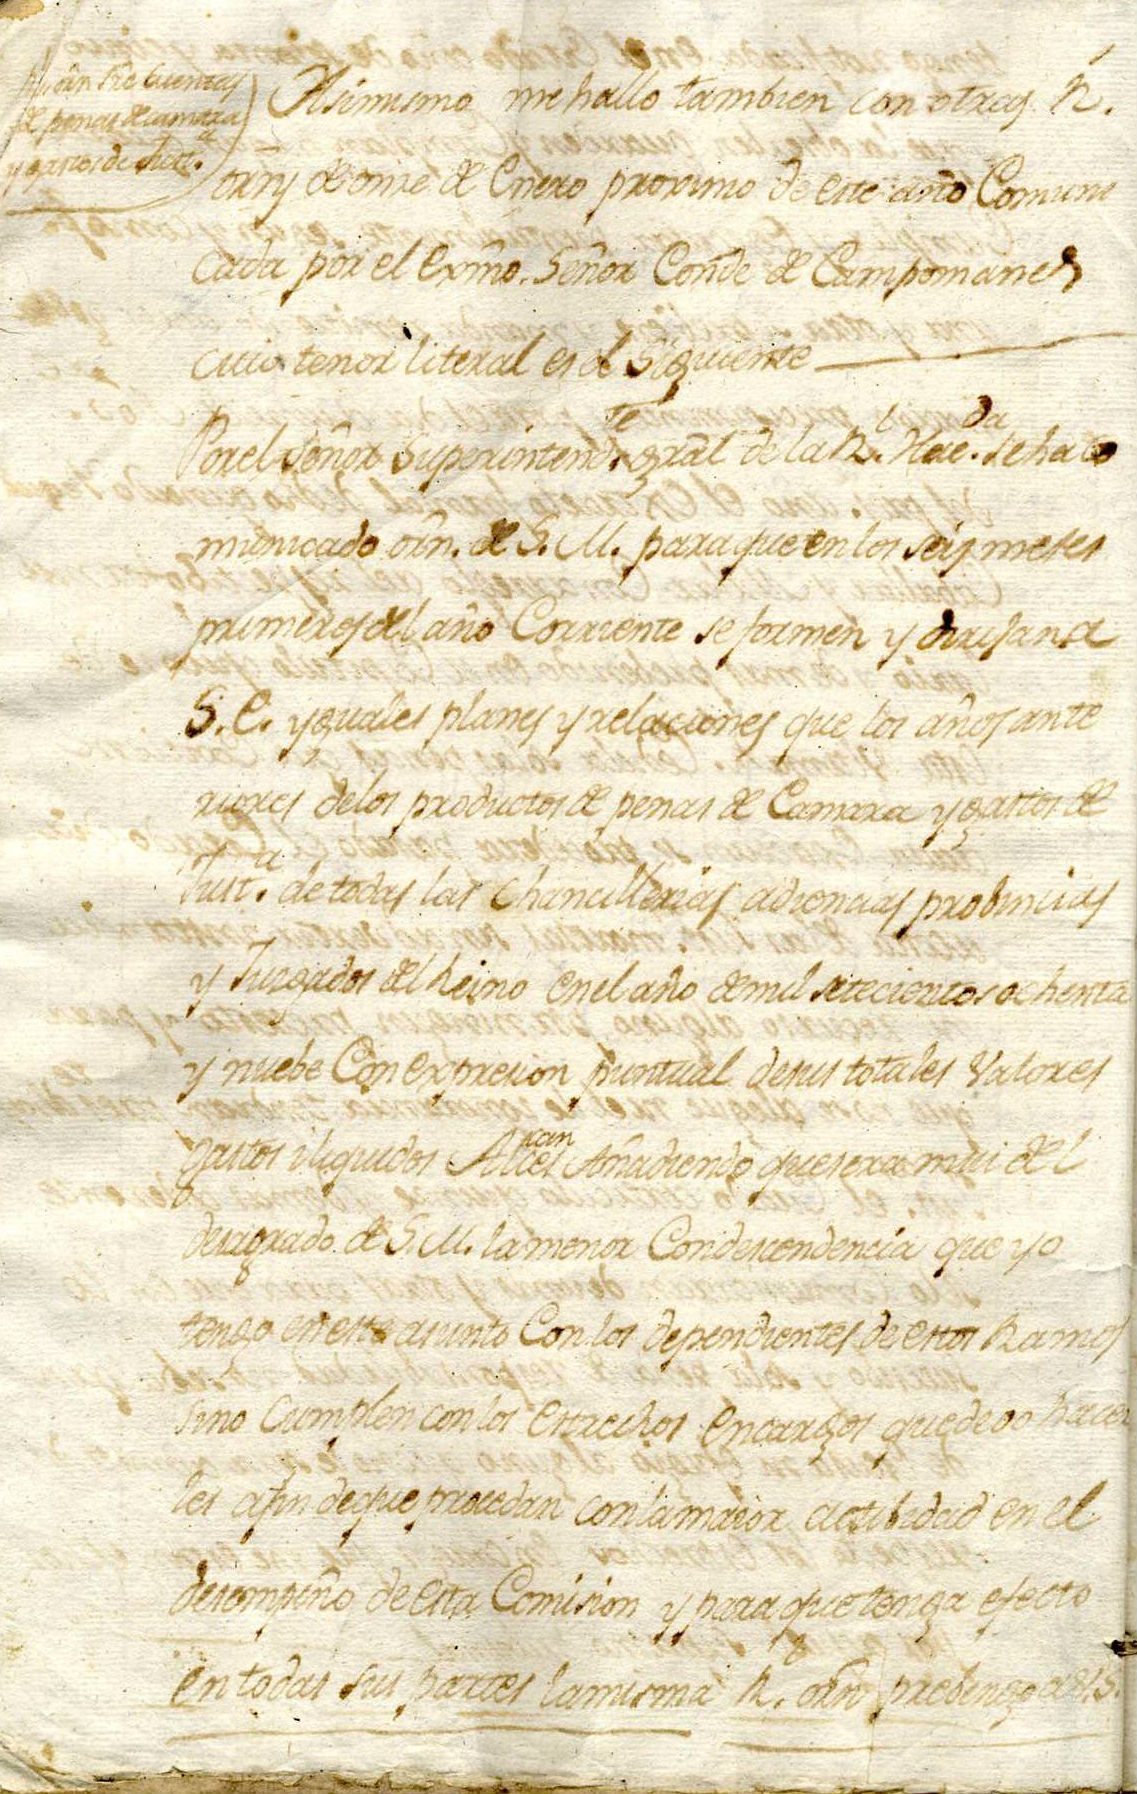 orn sre cuentas
de penas de camara
y gastos de Just.ª
Asimismo me hallo tambien con otras R.
orns de onze de Enero proximo de este año Comuni
cada por el Exmo. Señor Conde de Campomanes
cuio tenor literal es el Siguiente
Por el Señor Superintend.te gral de la R.l Hac.da se ha co
municado orn. de S. M. para que en los seis meses
primeros del año Corriente se formen y dirijan a
S. E. yguales planes y relaciones que los años ante
riores de los productos de penas de Camara y gastos de
Just.a de todas las Chancillerias adiencias probincias
y Juzgados del Reino en el año de mil setecientos ochenta
y nuebe Con expresion puntual de sus totales Valores
gastos i liquidos Alcan
ces Añadiendo que sera mui del
desagrado de S. M. la menor Condescendencia que yo
tenga en este asunto Con los dependientes de estos Ramos
sino Cumplen con los estrechos encargos que devo hacer
les a fin de que procedan con la maior actibidad en el
desempeño de esta Comision y para que tenga efecto
en todas sus partes la misma R. orn prebengo a V.S.